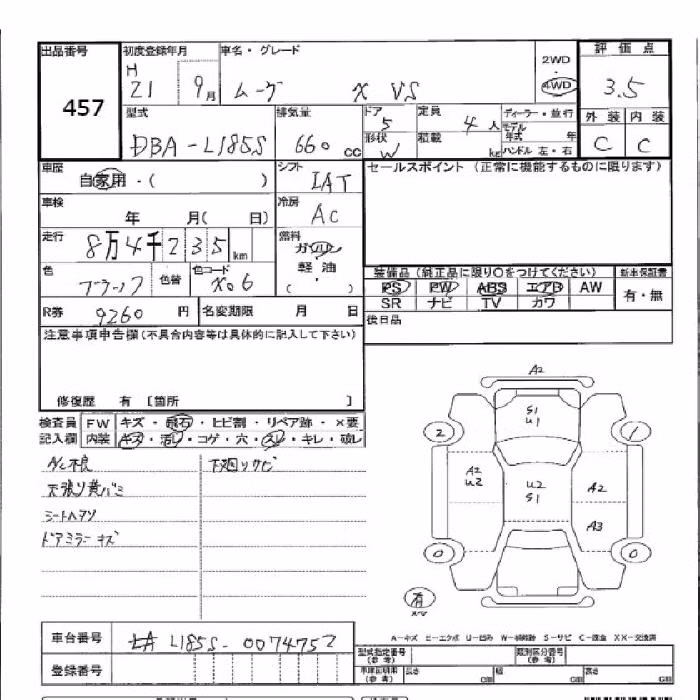 出品番号 初度登録年月 車名・グレード 評価点
457
H 21 9月 ムーヴ X VS
2WD
4WD
3.5
型式 排気量 ドア 定員 ディーラー・並行 外装 内装
DBA-L185S 660cc 5 4人 モデル年式 年 C C
形状 W 積載 kg ハンドル 左・右
車歴 自家用・( ) シフト IAT セールスポイント (正常に機能するものに限ります)
車検 年 月( 日) 冷房 AC
走行 8万4千235km 燃料 ガソリン
軽・油
( )
色 色替 色コード X06 装備品 (純正品に限り○をつけてください) 新車保証書
PS PW ABS エアB AW 有・無
SR ナビ TV カワ
R券 9260円 名変期限 月 日 後日品
注意事項申告欄(不具合内容等は具体的に記入して下さい)
修復歴 有 [箇所 ]
検査員 FW キズ・飛石・ヒビ割・リペア跡・×要
記入欄 内装 キズ・汚レ・コゲ・穴・スレ・キレ・破レ
A/C不良 下廻りサビ
天張り黄バミ
シートヘタリ
ドアミラーキズ
A2
S1
U1
2 1
A2
U2
U2
S1
A2
A3
0 0
有
A-キズ E-エクボ U-凹み W-補修跡 S-サビ C-腐食 XX-交換済
車台番号 L185S-0074752
型式指定番号 (参考) 類別区分番号 (参考)
登録番号 (参考) 長さ cm 幅 cm 高さ cm